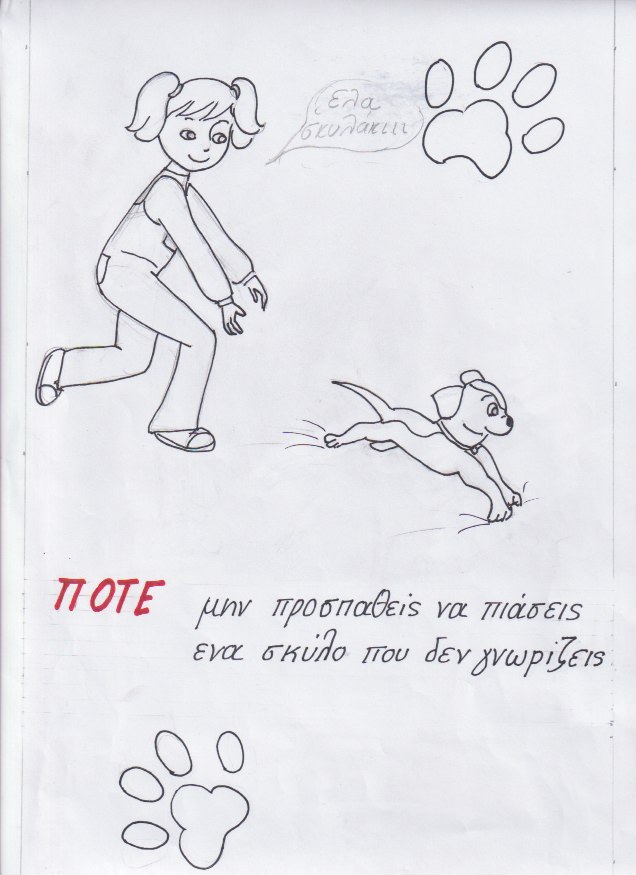 έλα
σκυλάκιιι
ΠΟΤΕ μην προσπαθείς να πιάσεις
ενα σκύλο που δεν γνωρίζεις